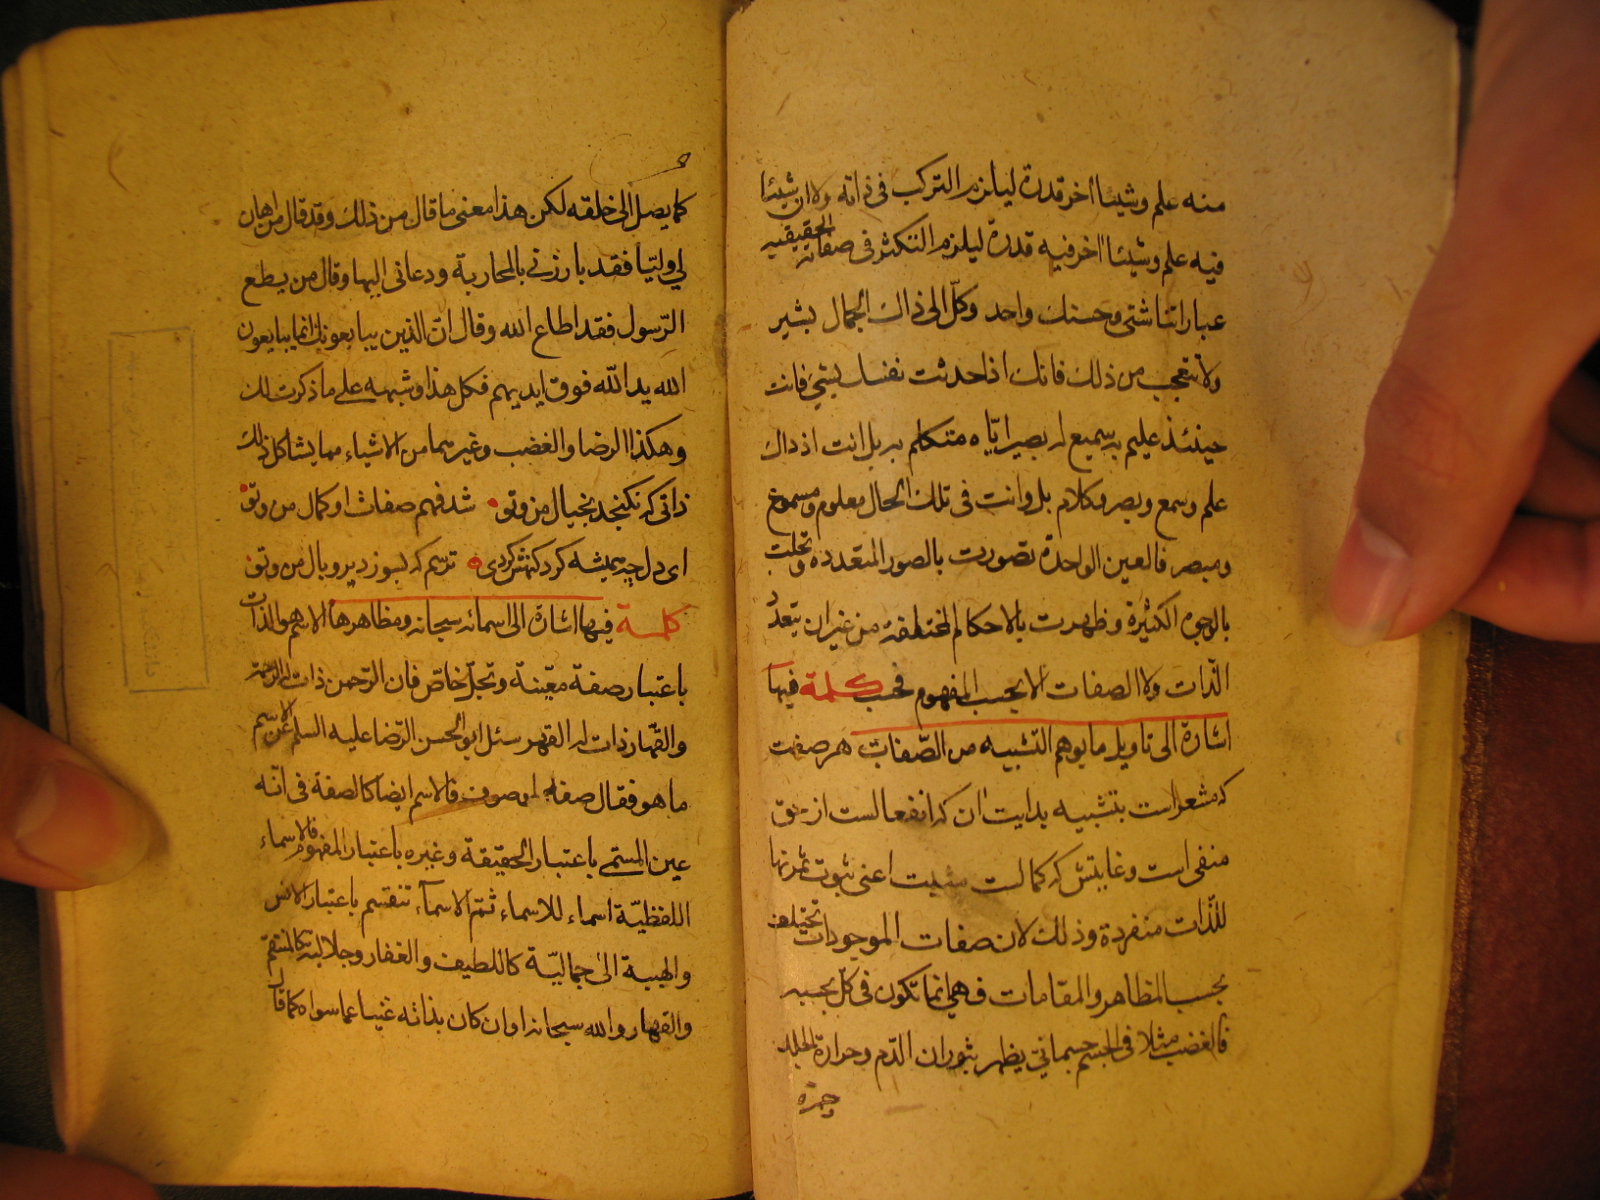 منه علم وشيئا اخر قدرة ليلزم التركب فى ذاته ولا ان شيئا
فيه علم وشيئا اخر فيه قدرة ليلزم التكثر فى صفاته الحقيقيه
عباراتنا شتى وحسنك واحد وكل الى ذاك الجمال يشير
ولا تتعجب من ذلك فانك اذا حدثت نفسك بشئ فانت
حينئذ عليم به سميع له بصير اياه متكلم به بل انت اذ ذاك
علم وسمع وبصر وكلام بل وانت فى تلك الحال معلوم ومسموع
ومبصر فالعين الواحدة تصورت بالصور المتعدده وتجلت
بالوجوه الكثيرة وظهرت بالاحكام المختلفة من غير ان يتعدد
الذات ولا الصفات الا بحسب المفهوم فحسب كلمة فيها
اشارة الى تاويل ما يوهم التشبيه من الصفات هر صفت
كه مشعر است بتشبيه بدايت ان كه انفعالست ازحق
منفى است وغايتش كه كمالست مثبت اعنى ثبوت ثمرتها
للذات منفردة وذلك لان صفات الموجودات تختلف
بحسب المظاهر والمقامات فهى انما تكون فى كل بحسبه
فالغضب مثلا فى الجسم جسمانى يظهر بثوران الدم وحرارة الجلد
وحمرة
كما يصل الى خلقه لكن هذا معنى ما قال من ذلك وقد قال من اهان
لى وليا فقد بارزنى بالمحاربة ودعانى اليها وقال من يطع
الرسول فقد اطاع الله وقال ان الذين يبايعونك انما يبايعون
الله يد الله فوق ايديهم فكل هذا وشبهه على ما ذكرت لك
وهكذا الرضا والغضب وغيرهما من الاشياء مما يشاكل ذلك
ذاتى كه نكنجد بخيال من وتو شد فهم صفاتش او كمال من وتو
اى دل چه تميشه كرد كنهش كردى ترسم كه بسوزد پر وبال من وتو
كلمة فيها اشارة الى اسمائه سبحانه ومظاهرها الاسم هو الذات
باعتبار صفة معينة وتجل خاص فان الرحمن ذات له الرحمة
والقهار ذات له القهر سئل ابو الحسن الرضا عليه السلم عن الاسم
ما هو فقال صفة لموصوف فالاسم ايضا كالصفة فى انه
عين المسمى باعتبار الحقيقة وغيره باعتبار المفهوم فالاسماء
اللفظية اسماء للاسماء ثم الاسماء تنقسم باعتبار الانس
والهيبة الى جمالية كاللطيف والغفار وجلالية كالمنتقم
والقهار والله سبحانه وان كان بذاته غنيا عما سواه كما قال